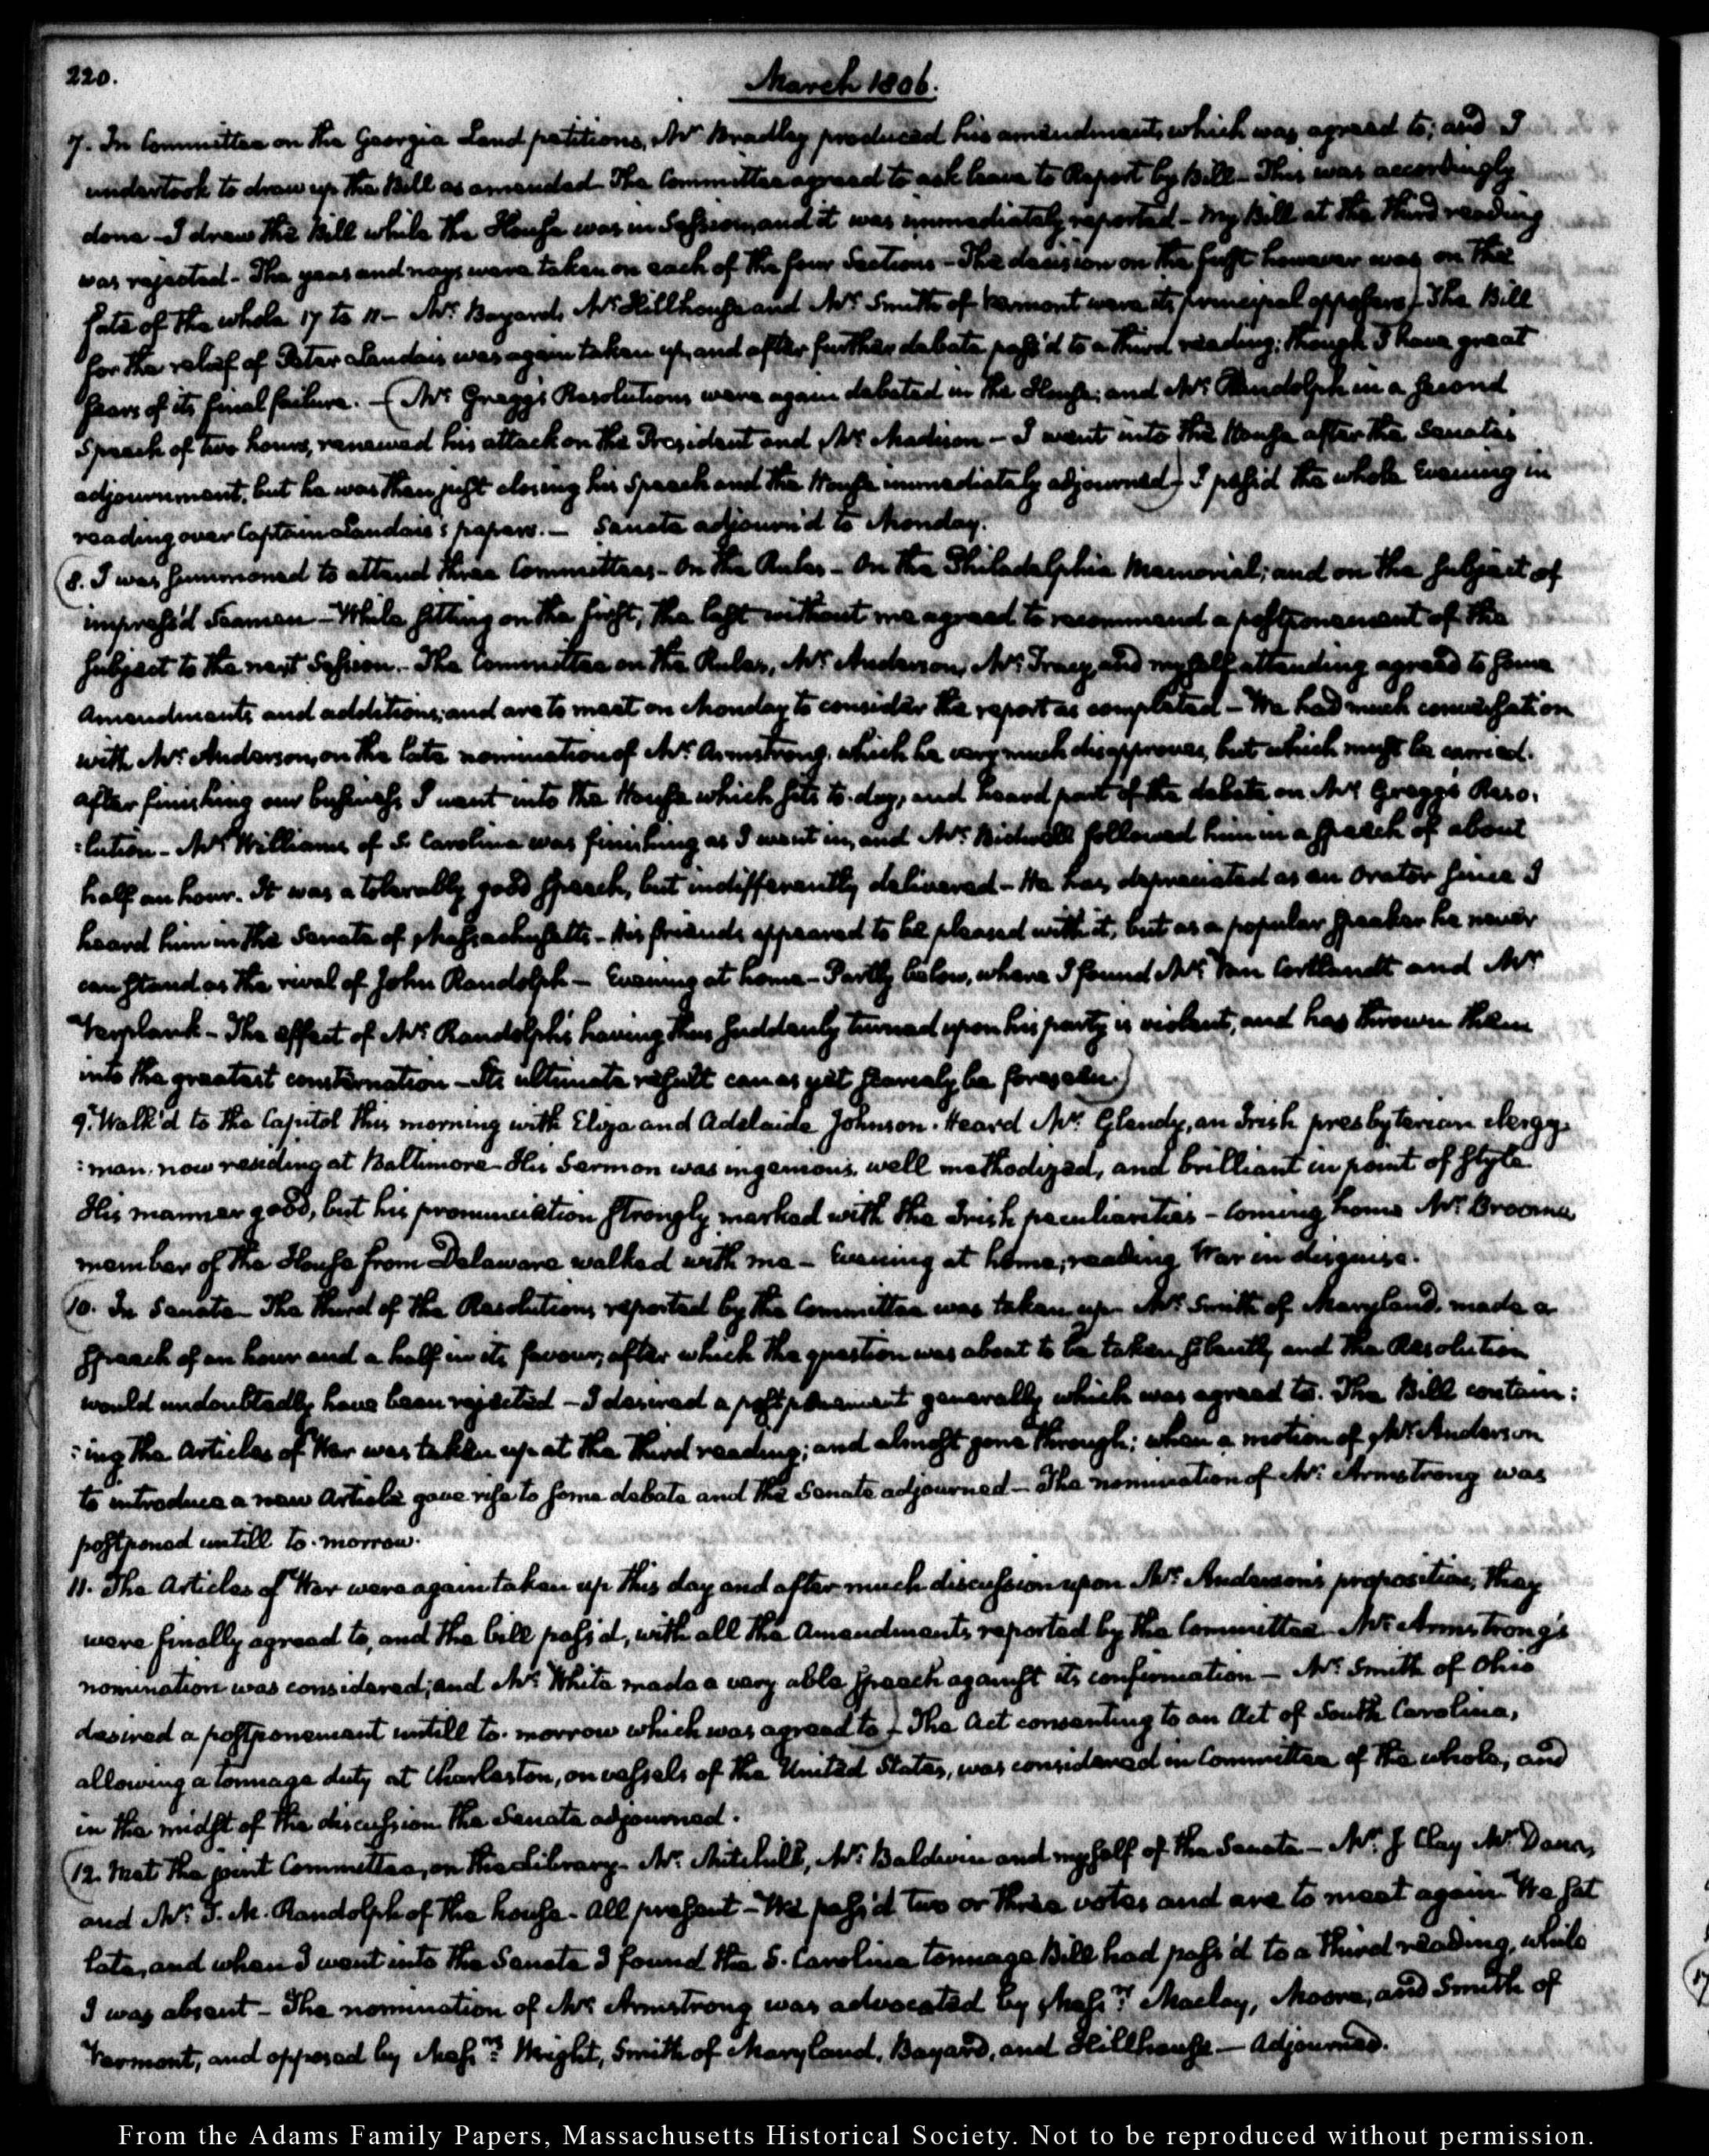 220.
March 1806.
7. In Committee on the Georgia Land petitions, Mr. Bradley produced his amendment, which was agreed to; and I
undertook to draw up the Bill as amended. The Committee agreed to ask leave to Report by Bill - This was accordingly
done - I drew the Bill while the House was in Session, and it was immediately reported - My Bill at the third reading
was rejected - The yeas and nays were taken on each of the four Sections - The decision on the first however was on the
fate of the whole 17 to 11 - Mr. Bayard, Mr. Hillhouse and Mr. Smith of Vermont were its principal opposers) - The Bill
for the relief of Peter Landais was again taken up, and after further debate pass'd to a third reading; though I have great
fears of its final failure. - (Mr. Gregg's Resolutions were again debated in the House; and Mr. Randolph in a second
Speech of two hours, renewed his attack on the President and Mr. Madison - I went into the House after the Senate's
adjournment, but he was then just closing his Speech and the House immediately adjourned) I pass'd the whole Evening in
reading over Captain Landais's papers. - Senate adjourn'd to Monday.
(8. I was summoned to attend three Committees - On the Rules - On the Philadelphia Memorial; and on the subject of
impress'd Seamen - While sitting on the first, the last without me agreed to recommend a postponement of the
subject to the next Session. - The Committee on the Rules, Mr. Anderson, Mr. Tracy, and myself attending agreed to some
Amendments and additions; and are to meet on Monday to consider the report as completed - We had much conversation
with Mr. Anderson, on the late nomination of Mr. Armstrong, which he very much disapproves, but which must be carried.
after finishing our business I went into the House which sits to-day, and heard part of the debate on Mr. Gregg's Reso-
:lution - Mr. Williams of S. Carolina was finishing as I went in, and Mr. Bidwell followed him in a speech of about
half an hour. It was a tolerably good speech, but indifferently delivered - He has depreciated as an Orator since I
heard him in the Senate of Massachusetts - His friends appeared to be pleased with it, but as a popular speaker he never
can stand as the rival of John Randolph - Evening at home - Partly below, where I found Mr. Van Cortlandt and Mr.
Verplank - The effect of Mr. Randolph's having thus suddenly turned upon his party is violent, and has thrown them
into the greatest consternation - Its ultimate result can as yet scarcely be foreseen.)
9. Walk'd to the Capitol this morning with Eliza and Adelaide Johnson. Heard Mr. Glendy, an Irish presbyterian clergy-
:man, now residing at Baltimore - His Sermon was ingenious, well methodized, and brilliant in point of style
His manner good, but his pronunciation strongly marked with the Irish peculiarities - Coming home Mr. Broome
member of the House from Delaware walked with me - Evening at home, reading War in disguise.
(10. In Senate - The third of the Resolutions reported by the Committee was taken up - Mr. Smith of Maryland, made a
speech of an hour and a half in its favour, after which the question was about to be taken silently and the Resolution
would undoubtedly have been rejected - I desired a postponement generally which was agreed to. The Bill contain:
:ing the Articles of War was taken up at the third reading; and almost gone through; when a motion of Mr. Anderson
to introduce a new Article gave rise to some debate and the Senate adjourned - The nomination of Mr. Armstrong was
postponed untill to-morrow.
11. The Articles of War were again taken up this day and after much discussion upon Mr. Anderson's proposition, they
were finally agreed to, and the bill pass'd, with all the Amendments reported by the Committee - Mr. Armstrong's
nomination was considered; and Mr. White made a very able speech against its confirmation - Mr. Smith of Ohio
desired a postponement untill to-morrow which was agreed to) - The Act consenting to an Act of South Carolina,
allowing a tonnage duty at Charleston, on vessels of the United States, was considered in Committee of the whole, and
in the midst of the discussion the Senate adjourned.
(12. Met the joint Committee, on the Library - Mr. Mitchill, Mr. Baldwin and myself of the Senate - Mr. J Clay Mr. Dana,
and Mr. T. M. Randolph of the house - All present - We pass'd two or three votes and are to meet again. We sat
late, and when I went into the Senate I found the S. Carolina tonnage Bill had pass'd to a third reading, while
I was absent - The nomination of Mr. Armstrong was advocated by Mess.rs Maclay, Moore, and Smith of
Vermont, and opposed by Mess.rs Wright, Smith of Maryland, Bayard, and Hillhouse - Adjourned.
From the Adams Family Papers, Massachusetts Historical Society. Not to be reproduced without permission.